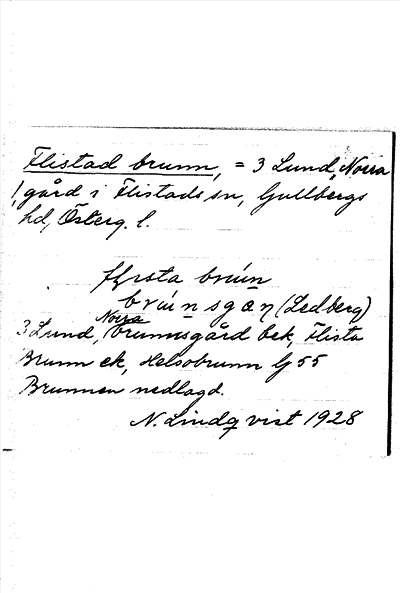 Flistad brunn, = 3 Lund, Norra
1, gård i Flistads sn, Gullbergs
hd, Österg. l.
flısta brún
brúnsgaɳ (Ledberg)
3 Lund, Norra brunnsgård bek, Flista
Brunn ek, Helsobrunn Gj 55
Brunnen nedlagd.
N. Lindqvist 1928